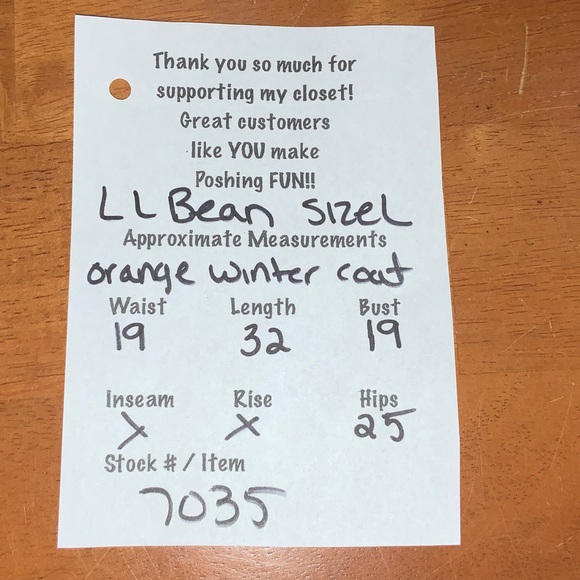 Thank you so much for
supporting my closet!
Great customers
like YOU make
Poshing FUN!!
LL Bean Size L
Approximate Measurements
orange winter coat
Waist Length Bust
19 32 19
Inseam Rise Hips
X X 25
Stock # / Item
7035